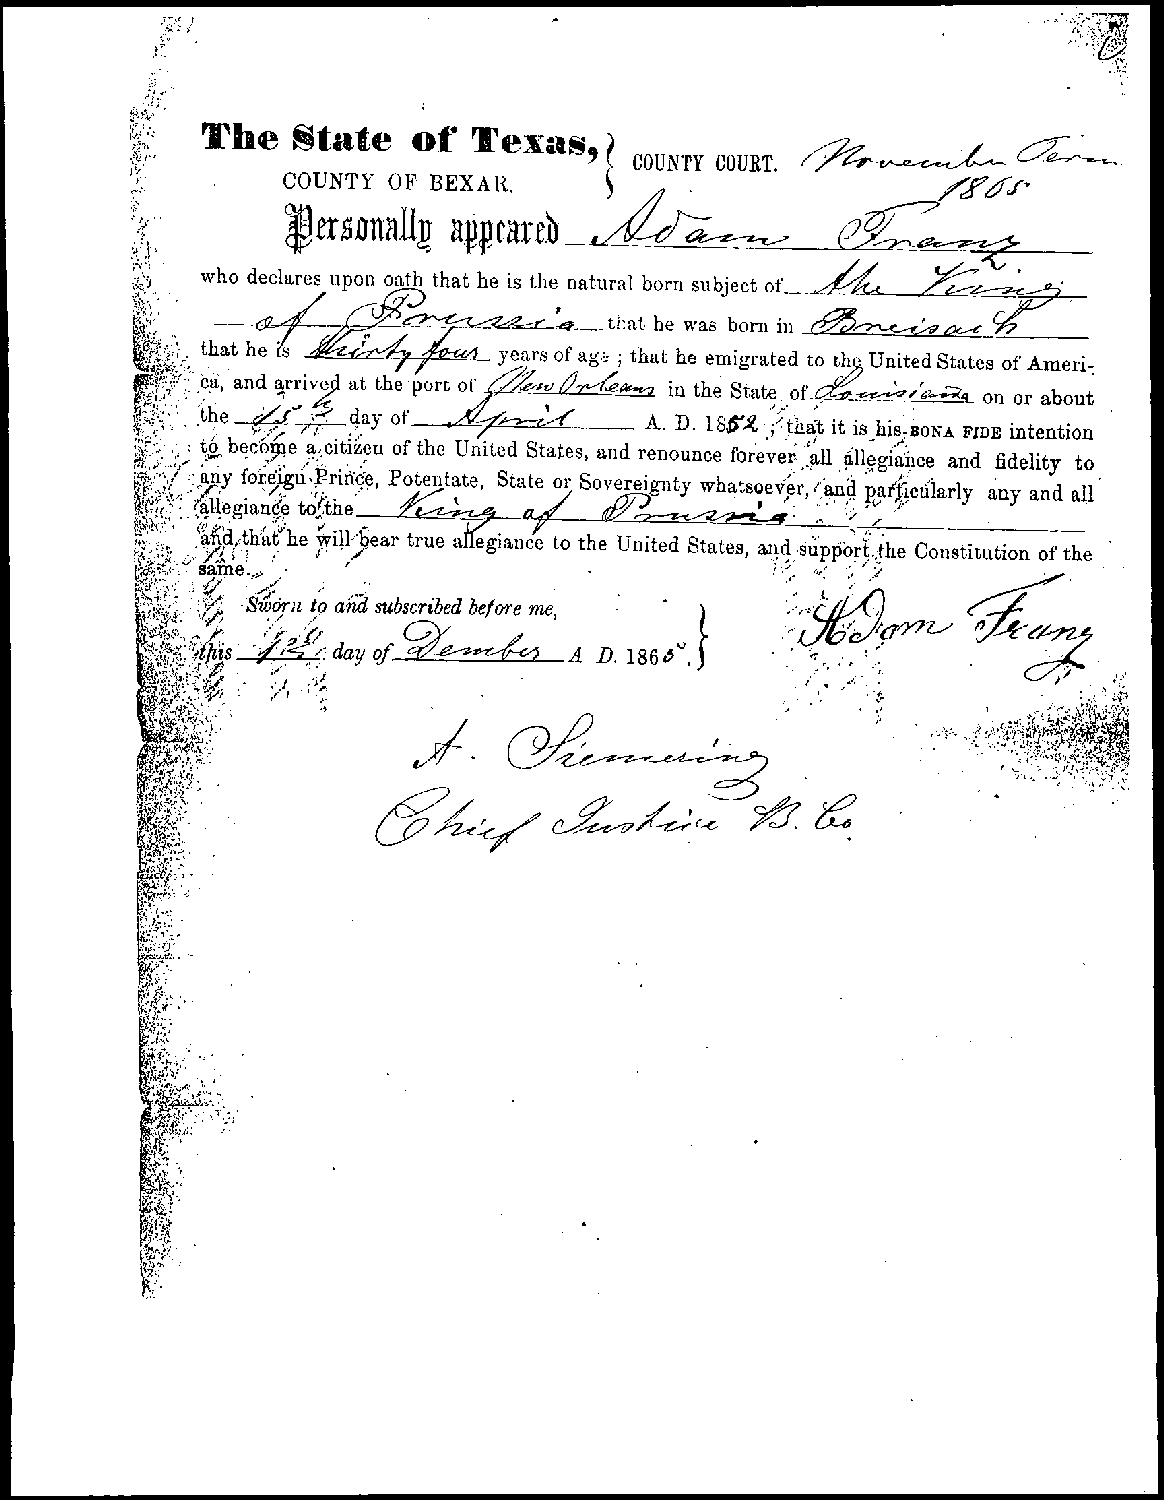 The State of Texas, } COUNTY COURT. November Term
COUNTY OF BEXAR. 1865
Personally appeared Adam Franz
who declares upon oath that he is the natural born subject of the King
of Prussia that he was born in Breisach
that he is thirty four years of age; that he emigrated to the United States of Ameri-
ca, and arrived at the port of New Orleans in the State of Louisiana on or about
the 15th day of April A. D. 1852; that it is his BONA FIDE intention
to become a citizen of the United States, and renounce forever all allegiance and fidelity to
any foreign Prince, Potentate, State or Sovereignty whatsoever, and particularly any and all
allegiance to the King of Prussia
and that he will bear true allegiance to the United States, and support the Constitution of the
same.
Sworn to and subscribed before me,
this day of Dember A. D. 1865. }
Adam Franz
A. Siemering
Chief Justice B. Co.